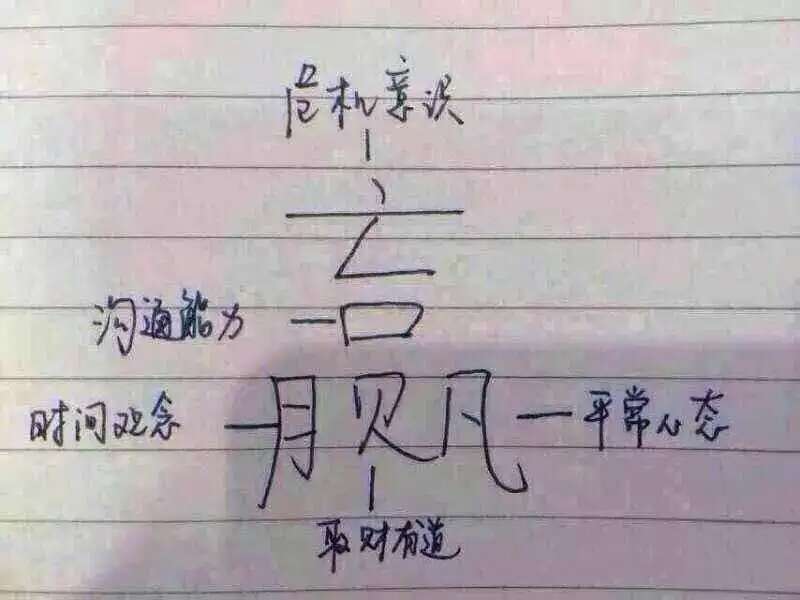 危机意识
亡
沟通能力 口
时间观念 月 贝 凡 平常心态
取财有道